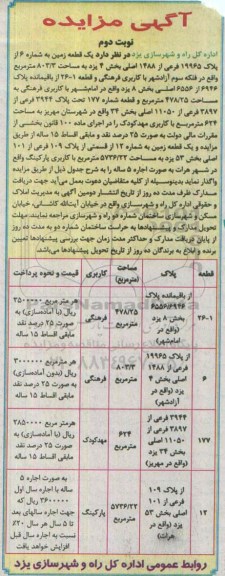 آگهی مزایده
نوبت دوم
اداره کل راه و شهرسازی یزد در نظر دارد یک قطعه زمین به شماره ۶ از
پلاک ۱۹۹۶۵ فرعی از ۱۴۸۸ اصلی بخش ۴ یزد به مساحت ۸۰۳/۳ مترمربع
واقع در فلکه سوم آزادشهر با کاربری فرهنگی و قطعه ۲۶-۱ از باقیمانده پلاک
۶۹۴۶ از ۶۵۵۶ اصلی بخش ۸ یزد واقع در امام‌شهر با کاربری فرهنگی به
مساحت ۴۷۸/۲۵ مترمربع و قطعه شماره ۱۷۷ تحت پلاک ۳۹۴۴ فرعی از
۳۸۹۷ فرعی از ۱۱۰۵۰ اصلی بخش ۳۴ واقع در شهرستان مهریز به مساحت
۶۲۴ مترمربع با کاربری مهدکودک را در اجرای ماده ۱۰۰ قانون بخشی از
مقررات مالی دولت به صورت ۲۵ درصد نقد و مابقی اقساط ۱۵ ساله از طریق
مزایده و یک قطعه زمین به شماره ۱۲ از قسمتی از پلاک ۱۰۹ فرعی از ۱۰۱
اصلی بخش ۵۳ یزد به مساحت ۵۷۳۶/۲۲ مترمربع با کاربری پارکینگ واقع
در شهر هرات به صورت اجاره ۵ ساله را به شرح جدول ذیل از طریق مزایده
واگذار نماید بدینوسیله از کلیه متقاضیان دعوت بعمل می‌آید جهت دریافت
مدارک ظرف مدت ده روز از تاریخ انتشار دومین آگهی به مدیریت املاک
و حقوقی اداره کل راه و شهرسازی واقع در خیابان آیت‌الله کاشانی، خیابان
مسکن و شهرسازی ساختمان شماره دو راه و شهرسازی مراجعه نمایند. مهلت
تحویل مدارک و پیشنهادها به حراست ساختمان شماره دو به مدت ده روز
از پایان دریافت مدارک و حداکثر مدت زمان جهت بررسی پیشنهادها تعیین
برنده و ابلاغ به برندگان ده روز از تاریخ تحویل پیشنهادها می‌باشد.
قطعه پلاک مساحت (مترمربع) کاربری قیمت و نحوه پرداخت
۲۶-۱ از باقیمانده پلاک ۶۵۵۶/۶۹۴۶ بخش ۸ یزد (واقع در امام‌شهر) ۴۷۸/۲۵ فرهنگی هر متر مربع ۲۵۰۰۰۰۰ ریال (با آماده‌سازی) به صورت ۲۵ درصد نقد مابقی اقساط ۱۵ ساله
۶ از پلاک ۱۹۹۶۵ فرعی از ۱۴۸۸ اصلی بخش ۴ یزد (واقع در آزادشهر) ۸۰۳/۳ مترمربع فرهنگی هر مترمربع ۳۰۰۰۰۰۰ ریال (بدون آماده‌سازی) به صورت ۲۵ درصد نقد مابقی اقساط ۱۵ ساله
۱۷۷ ۳۹۴۴ فرعی از ۳۸۹۷ فرعی از ۱۱۰۵۰ اصلی بخش ۳۴ یزد (واقع در مهریز) ۶۲۴ مترمربع مهدکودک هر متر مربع ۲۸۵۰۰۰۰ ریال (با آماده‌سازی) به صورت ۲۵ درصد نقد مابقی اقساط ۱۵ ساله
۱۲ از پلاک ۱۰۹ فرعی از ۱۰۱ اصلی بخش ۵۳ یزد (واقع در هرات) ۵۷۳۶/۲۲ مترمربع پارکینگ به صورت اجاره ۵ ساله با اجاره سال اول ۳۶۰۰۰۰۰۰ ریال که جهت اجاره سالهای بعد تا ۵ سال هر سال ۲۰٪ نسبت به اجاره سال قبل افزایش خواهد یافت
روابط عمومی اداره کل راه و شهرسازی یزد